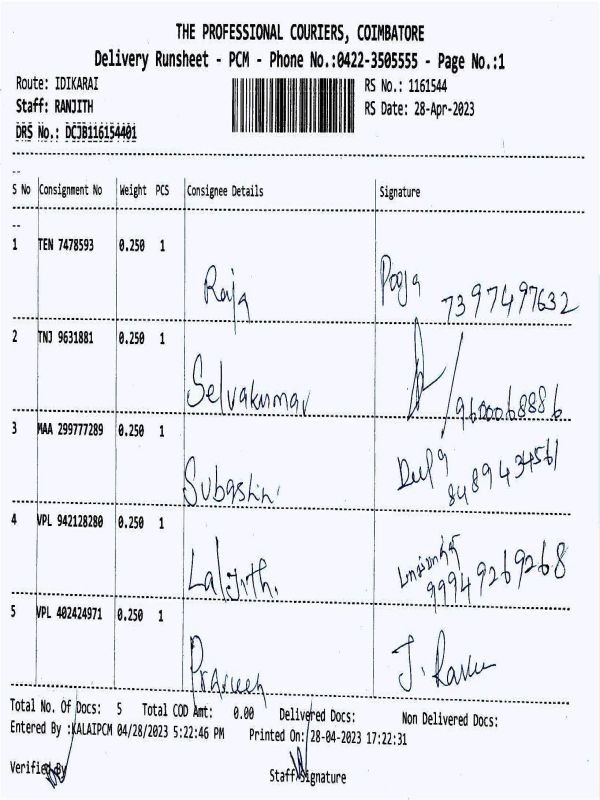 THE PROFESSIONAL COURIERS, COIMBATORE
Delivery Runsheet - PCM - Phone No.:0422-3505555 - Page No.:1
Route: IDIKARAI RS No.: 1161544
Staff: RANJITH RS Date: 28-Apr-2023
DRS No.: DCJB116154401
S No Consignment No Weight PCS Consignee Details Signature
1 TEN 7478593 0.250 1
Raja Pooja 7397497632
2 TNJ 9631881 0.250 1
Selvakumar 9600068886
3 MAA 299777289 0.250 1
Subashini 8489434561
4 VPL 942128280 0.250 1
Laljith. 99949269268
5 VPL 402424971 0.250 1
Praveen J.
Total No. Of Docs: 5 Total COD Amt: 0.00 Delivered Docs: Non Delivered Docs:
Entered By :KALAIPCM 04/28/2023 5:22:46 PM Printed On: 28-04-2023 17:22:31
Verified By Staff Signature